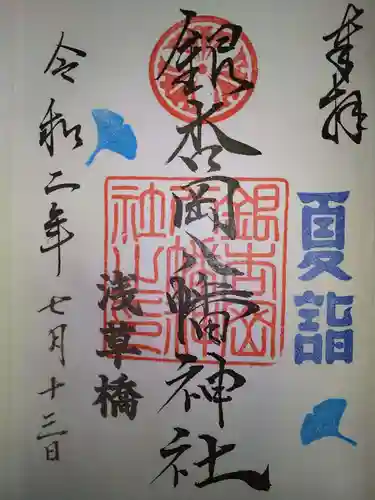 奉拝
夏詣
銀杏岡八幡神社
銀杏岡八幡神社之印
浅草橋
令和二年七月十三日